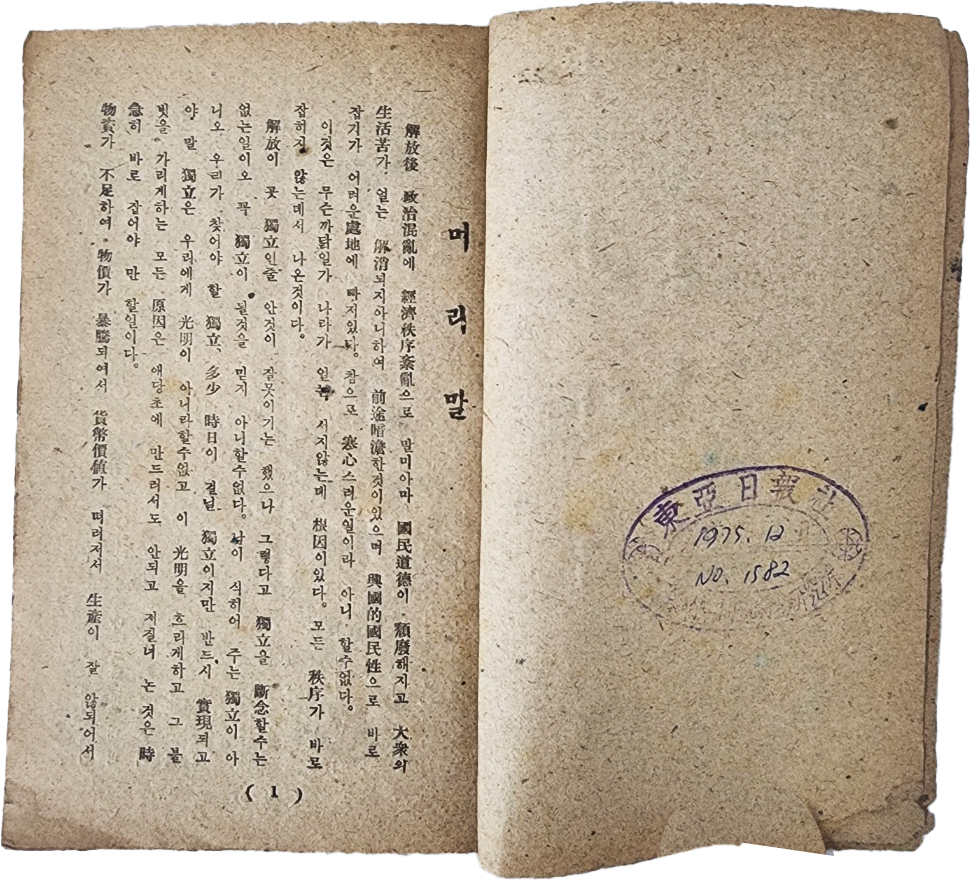 東亞日報社
1975. 12
NO. 1582
머리말
解放後 政治混亂에 經濟秩序紊亂으로 말미아마 國民道德이 頹廢해지고 大衆의
生活苦가 얼는 解消되지아니하여 前途暗澹한것이있으며 興國的國民性으로 바로
잡기가 어려운處地에 빠저있다。참으로 寒心스러운일이라 아니 할수없다。
이것은 무슨까닭일가 나라가 얼는 서지않는데 根因이있다。모든 秩序가 바로
잡히지 않는데서 나온것이다。
解放이 곳 獨立인줄 안것이 잘못이기는 했으나 그렇다고 獨立을 斷念할수는
없는일이오 꼭 獨立이 될것을 믿지 아니할수없다。남이 식히어 주는 獨立이 아
니오 우리가 찾어야 할 獨立、多少 時日이 걸닐 獨立이지만 반드시 實現되고
야 말 獨立은 우리에게 光明이 아니라할수없고 이 光明을 흐리게하고 그 불
빗을 가리게하는 모든 原因은 애당초에 만드러서도 안되고 저질너 논 것은 時
急히 바로 잡어야 만 할일이다。
物資가 不足하여 物價가 暴騰되여서 貨幣價値가 떠러저서 生産이 잘 않되어서
( 1 )